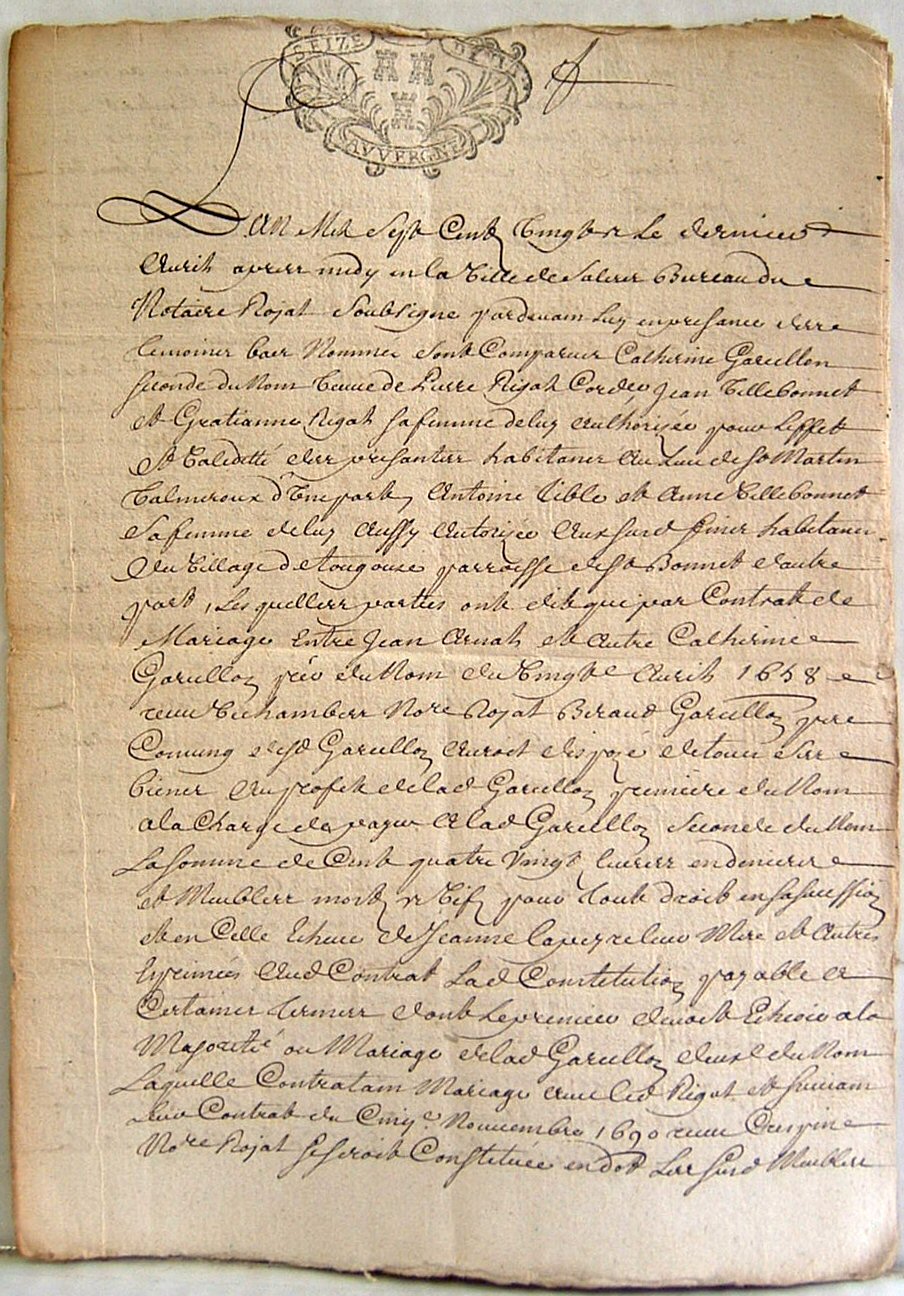 SEIZE DEN
AVVERGNE
L'an Mil Sept Cents Vingt & Le dernier
Avril apres midy en la Ville de Salers Bureau du
Notaire Rojat Soubsigne pardevant Luy en presance des
temoins bas Nommés sont Comparus Catherine Garcellon
seconde du Nom veuve de Pierre Rigat Jean Villebonnet
et Gratianne Rigat sa femme de luy authorisée pour Leffet
et Validitté des presantes habitans du Lieu de St Martin
Valmeroux d'Une part, Antoine et Anne Villebonnet
sa femme de luy aussy autorisée aux habitans
du Village de parroisse de St Bonnet d'autre
part, Lesquelles parties ont dit que par Contrat de
Mariage Entre Jean et autre Catherine
Garcellon du Nom du Vingt Avril 1658
receu Dechambers Nore Rojat Beraud Garcellon pere
Comung desd Garcellon auroit disposé de tous ses
biens au profit de lad Garcellon premiere du Nom
a la Charge de payer a lad Garcellon Seconde du Nom
La somme de Cent quatre Vingt livres en deniers
et Meubles morts & vifs pour tout droit en sa suession
et en Celle Echue de Jeanne leur Mere et autres
Exprimés aud Contrat Lad Constitution payable a
Certains termes dont Le premier devoit Echeoir a la
Majorité ou Mariage de lad Garcellon deuxe du Nom
Laquelle Contratant Mariage avec led Rigat et suivant
Leur Contrat du Cinqe Nouvembre 1690 receu Crespin
Nore Rojat se seroit Constituée en dot Les Meubles